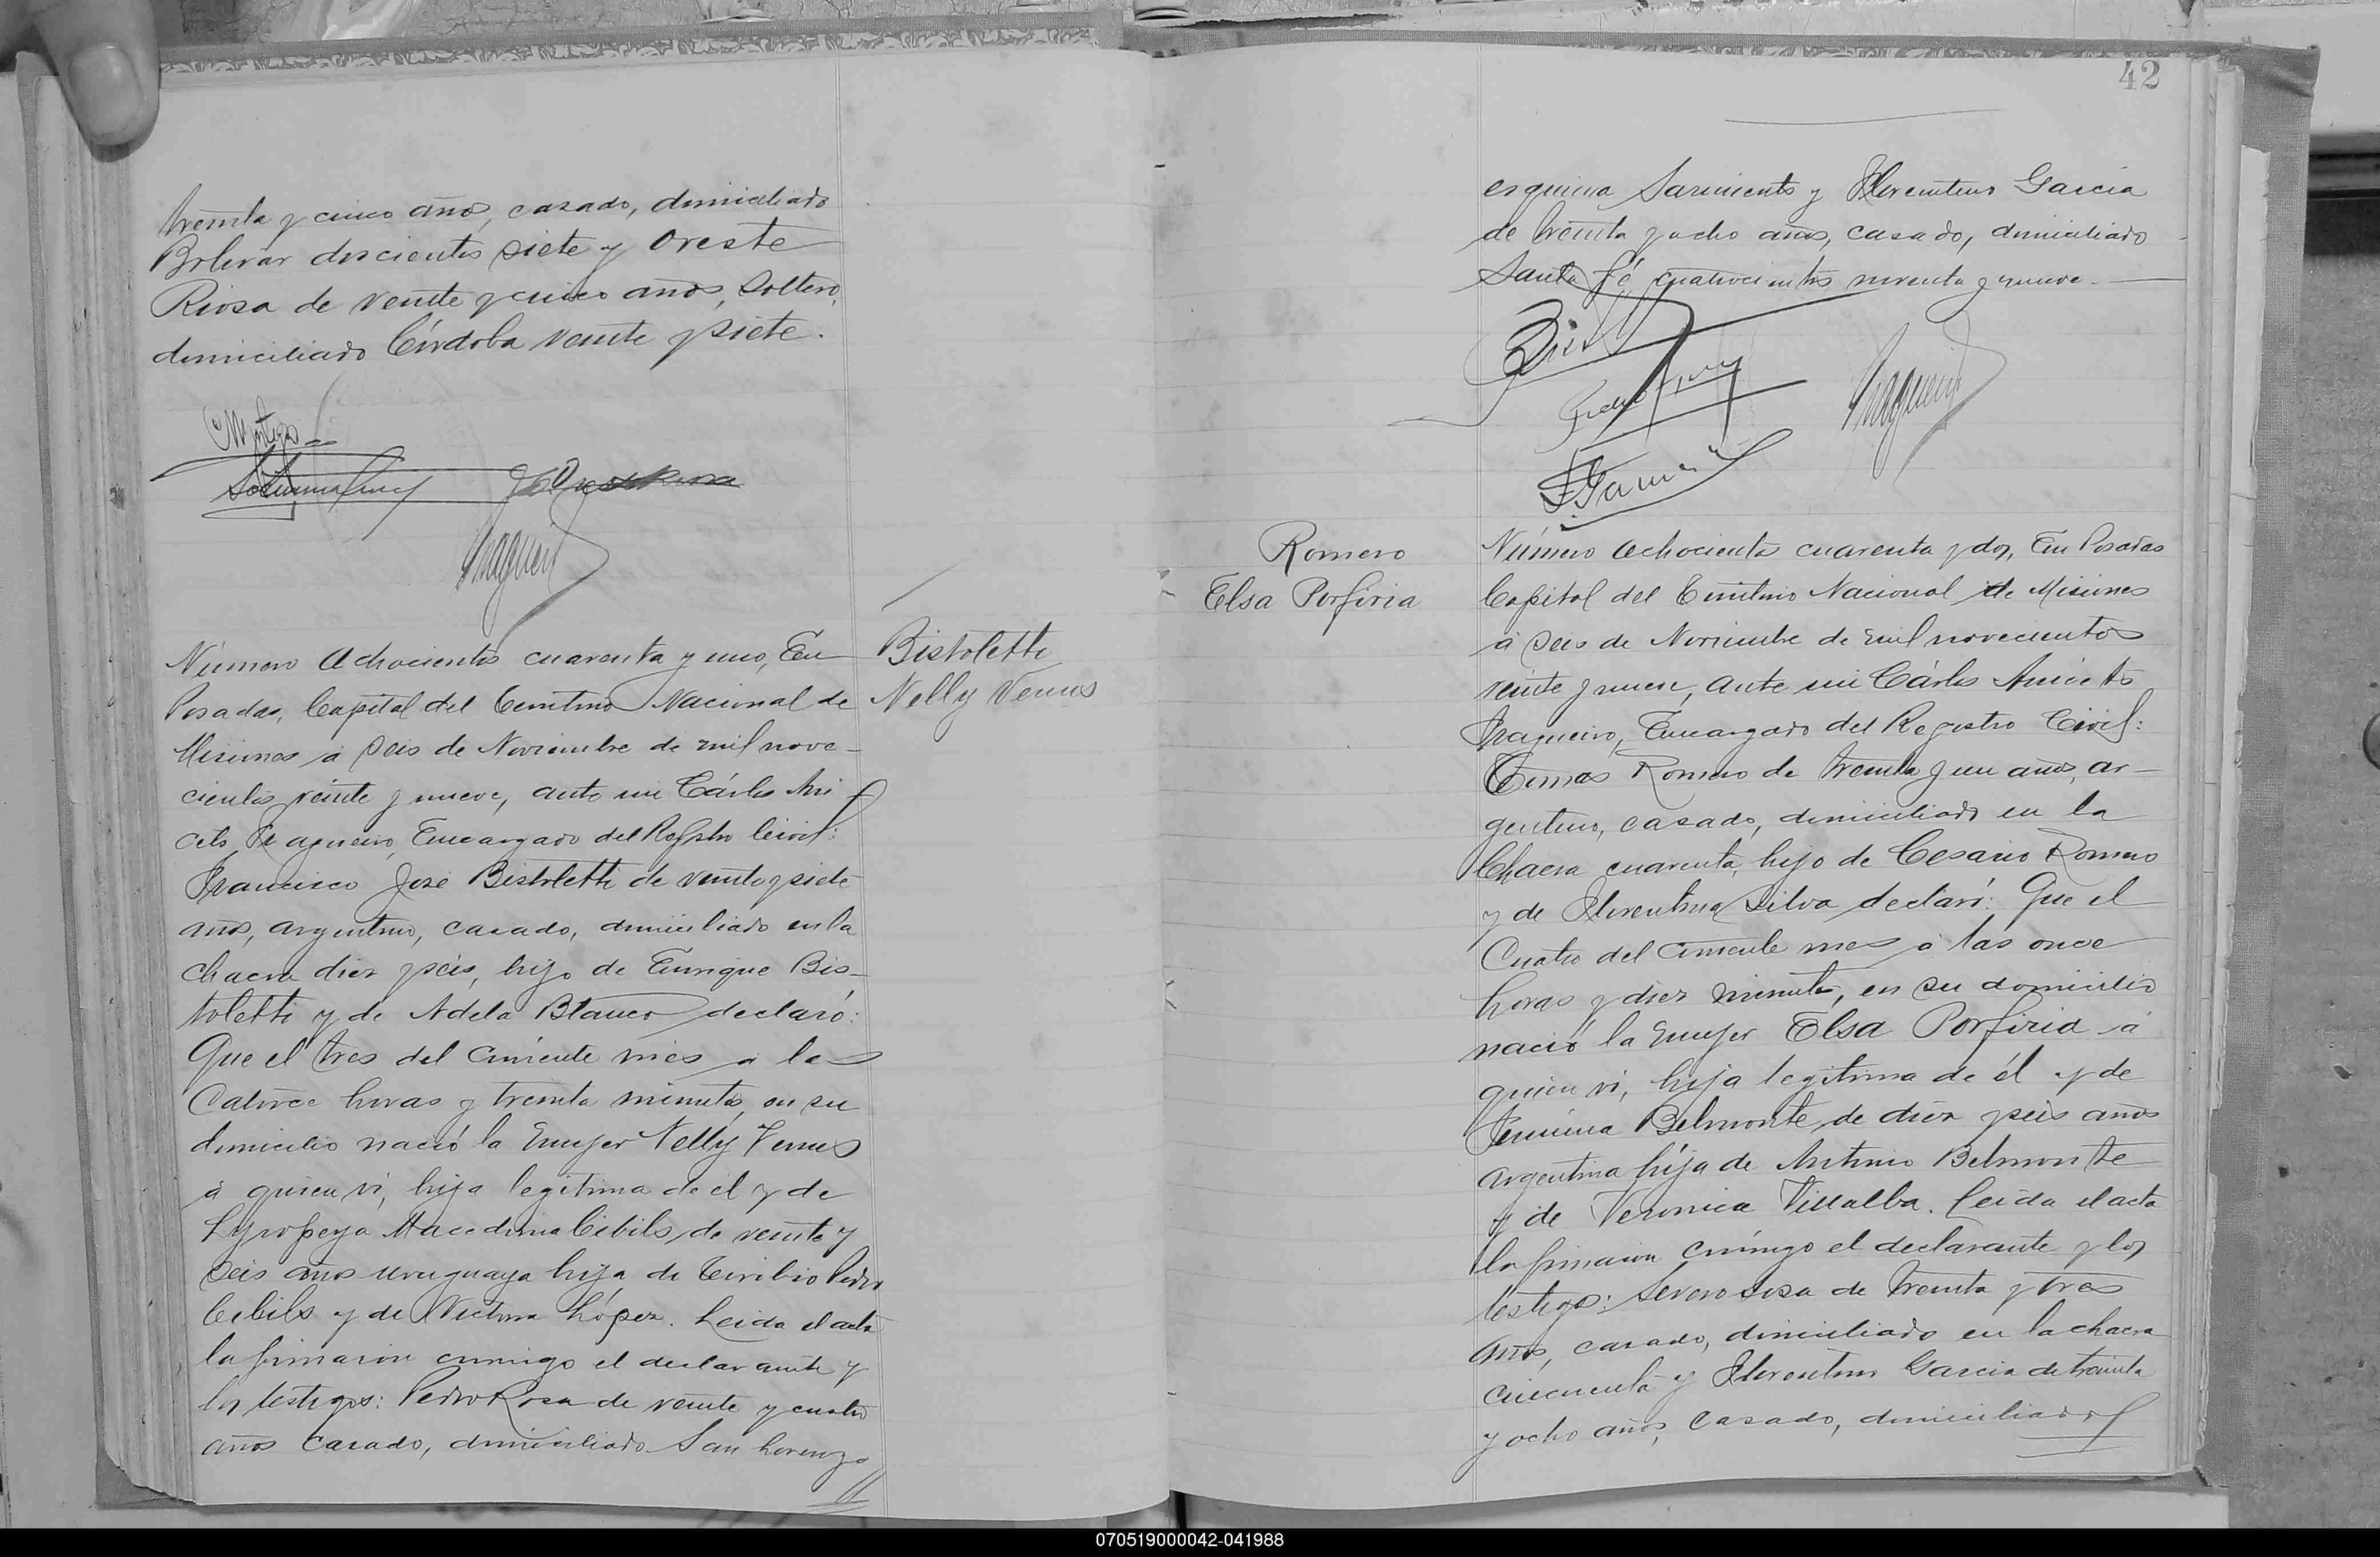 treinta y cinco años, casado, domiciliado
Bolivar doscientos siete y Oreste
Riosa de veinte y cinco años, soltero,
domiciliado Córdoba veinte y siete.
Número Ochocientos cuarenta y uno, En
Posadas, Capital del Territorio Nacional de
Misiones á seis de Noviembre de mil nove-
cientos veinte y nueve, ante mi Cárlos Ani-
ceto Fragueiro, Encargado del Registro Civil:
Francisco José Bistoletti de veinte y siete
años, argentino, casado, domiciliado en la
chacra diez y seis, hijo de Enrique Bis-
toletti y de Adela Blanco declaró:
Que el tres del corriente mes a las
Catorce horas y treinta minutos, en su
domicilio nació la mujer Nelly Venus
á quien vi, hija legítima de el y de
Lyropeya Macedonia Cibils, de veinte y
seis años uruguaya hija de Toribio Pedro
Cibils y de Victoria López. Leida el acta
la firmaron conmigo el declarante y
los testigos: Pedro Rosa de veinte y cuatro
años casado, domiciliado San Lorenzo
Bistoletti
Nelly Venus
42
esquina Sarmiento y Florentino García
de treinta y ocho años, casado, domiciliado
Santa Fé cuatrocientos noventa y nueve.
Romero
Elsa Porfiria
Número Ochocientos cuarenta y dos, En Posadas
Capital del Territorio Nacional de Misiones
á seis de Noviembre de mil novecientos
veinte y nueve, ante mi Cárlos Aniceto
Fragueiro, Encargado del Registro Civil:
Tomás Romero de treinta y un años, ar-
gentino, casado, domiciliado en la
Chacra cuarenta, hijo de Cesario Romero
y de Florentina Silva declaró: Que el
Cuatro del corriente mes á las once
horas y diez minutos, en su domicilio
nació la mujer Elsa Porfiria á
quien vi, hija legítima de él y de
Belmonte de diez y seis años
argentina hija de Antonio Belmonte
y de Veronica Villalba. Leida el acta
la firmaron conmigo el declarante y los
testigos: Severo Sosa de treinta y tres
años, casado, domiciliado en la chacra
cincuenta y Florentino Garcia de treinta
y ocho años, casado, domiciliado
070519000042-041988